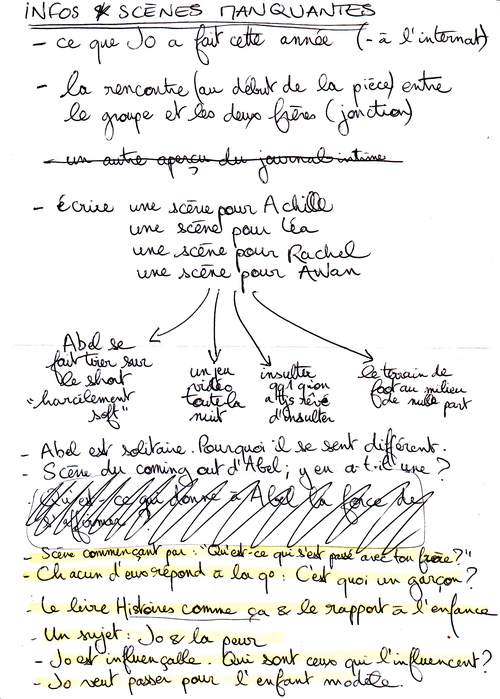 INFOS & SCÈNES MANQUANTES
- ce que Jo a fait cette année (- à l'internat)
- la rencontre (au début de la pièce) entre
le groupe et les deux frères (jonction)
- un autre aperçu du journal intime
- écrire une scène pour Achille
une scène pour Léa
une scène pour Rachel
une scène pour Awan
Abel se
fait tirer sur
le short
"harcèlement
soft"
un jeu
vidéo
toute la
nuit
insulter
qq1 qu'on
a tjs rêvé
d'insulter
le terrain de
foot au milieu
de nulle part
- Abel est solitaire. Pourquoi il se sent différent.
- Scène du coming out d'Abel ; y en a-t-il une ?
- Qu'est-ce qui donne à Abel la force de
s'affirmer ?
- Scène commençant par : "Qu'est-ce qui s'est passé avec ton frère ?"
- Chacun d'eux répond à la qo : C'est quoi un garçon ?
- Le livre Histoires comme ça & le rapport à l'enfance
- Un sujet : Jo & la peur
- Jo est influençable. Qui sont ceux qui l'influencent ?
- Jo veut passer pour l'enfant modèle.